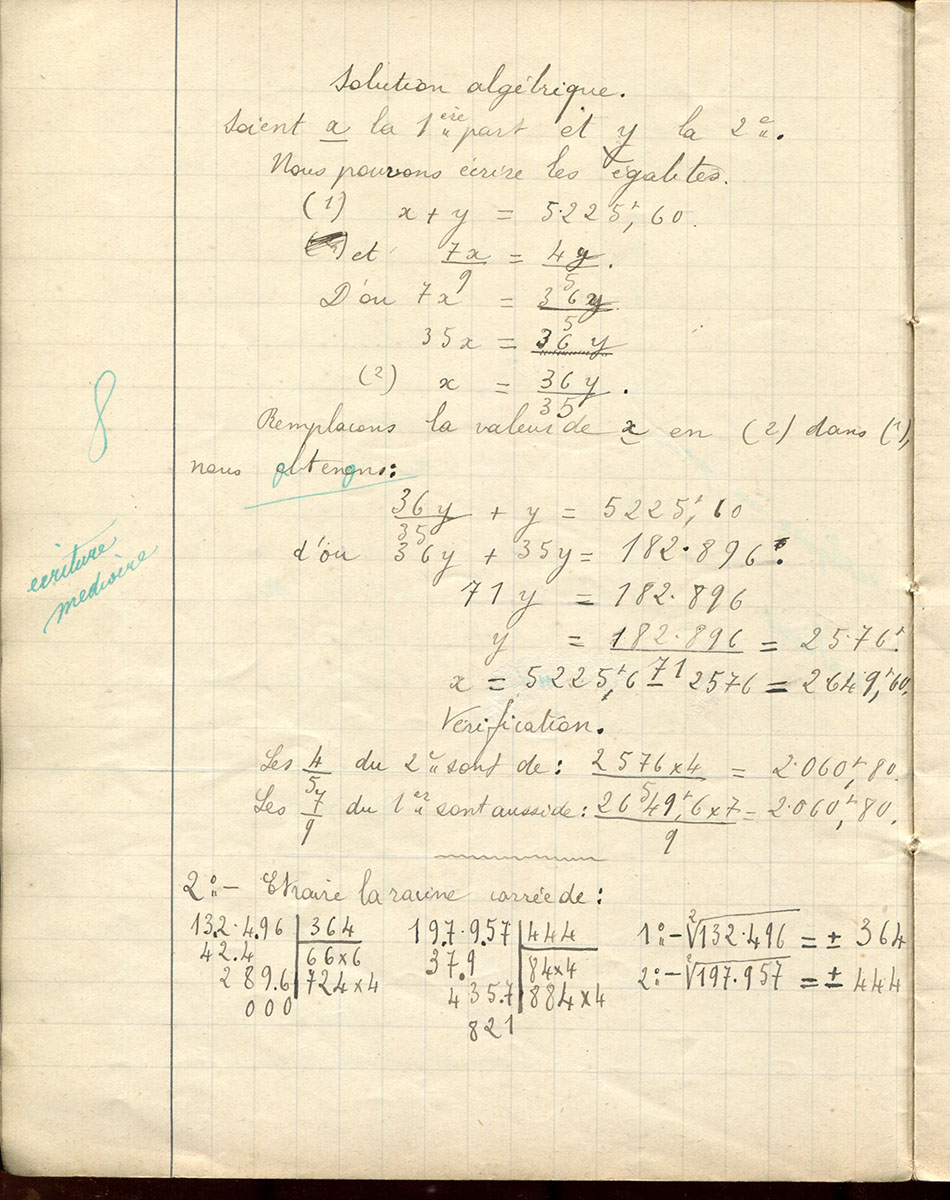 Solution algébrique.
Soient x la 1ère part et y la 2e.
Nous pouvons écrire les égalités.
(1) x + y = 5.225f,60.
et 7x/9 = 4y/5.
D'où 7x = 36y/5
35x = 36y
(2) x = 36y/35.
Remplaçons la valeur de x en (2) dans (1),
nous obtenons:
8
36y/35 + y = 5225f,60
d'où 36y + 35y = 182.896.
ecriture
mediocre
71y = 182.896
y = 182.896/71 = 2576f.
x = 5225f,6 - 2576 = 2649f,60.
Vérification.
Les 4/5 du 2e sont de: 2576x4/5 = 2.060f,80.
Les 7/9 du 1er sont aussi de: 2649f,6x7/9 = 2.060f,80.
2o:- Extraire la racine carrée de:
13.2.4.96 | 364
42.4 | 66x6
289.6 | 724x4
000
19.7.9.57 | 444
37.9 | 84x4
435.7 | 884x4
821
1o:- 2√132.496 = ± 364
2:- 2√197.957 = ± 444